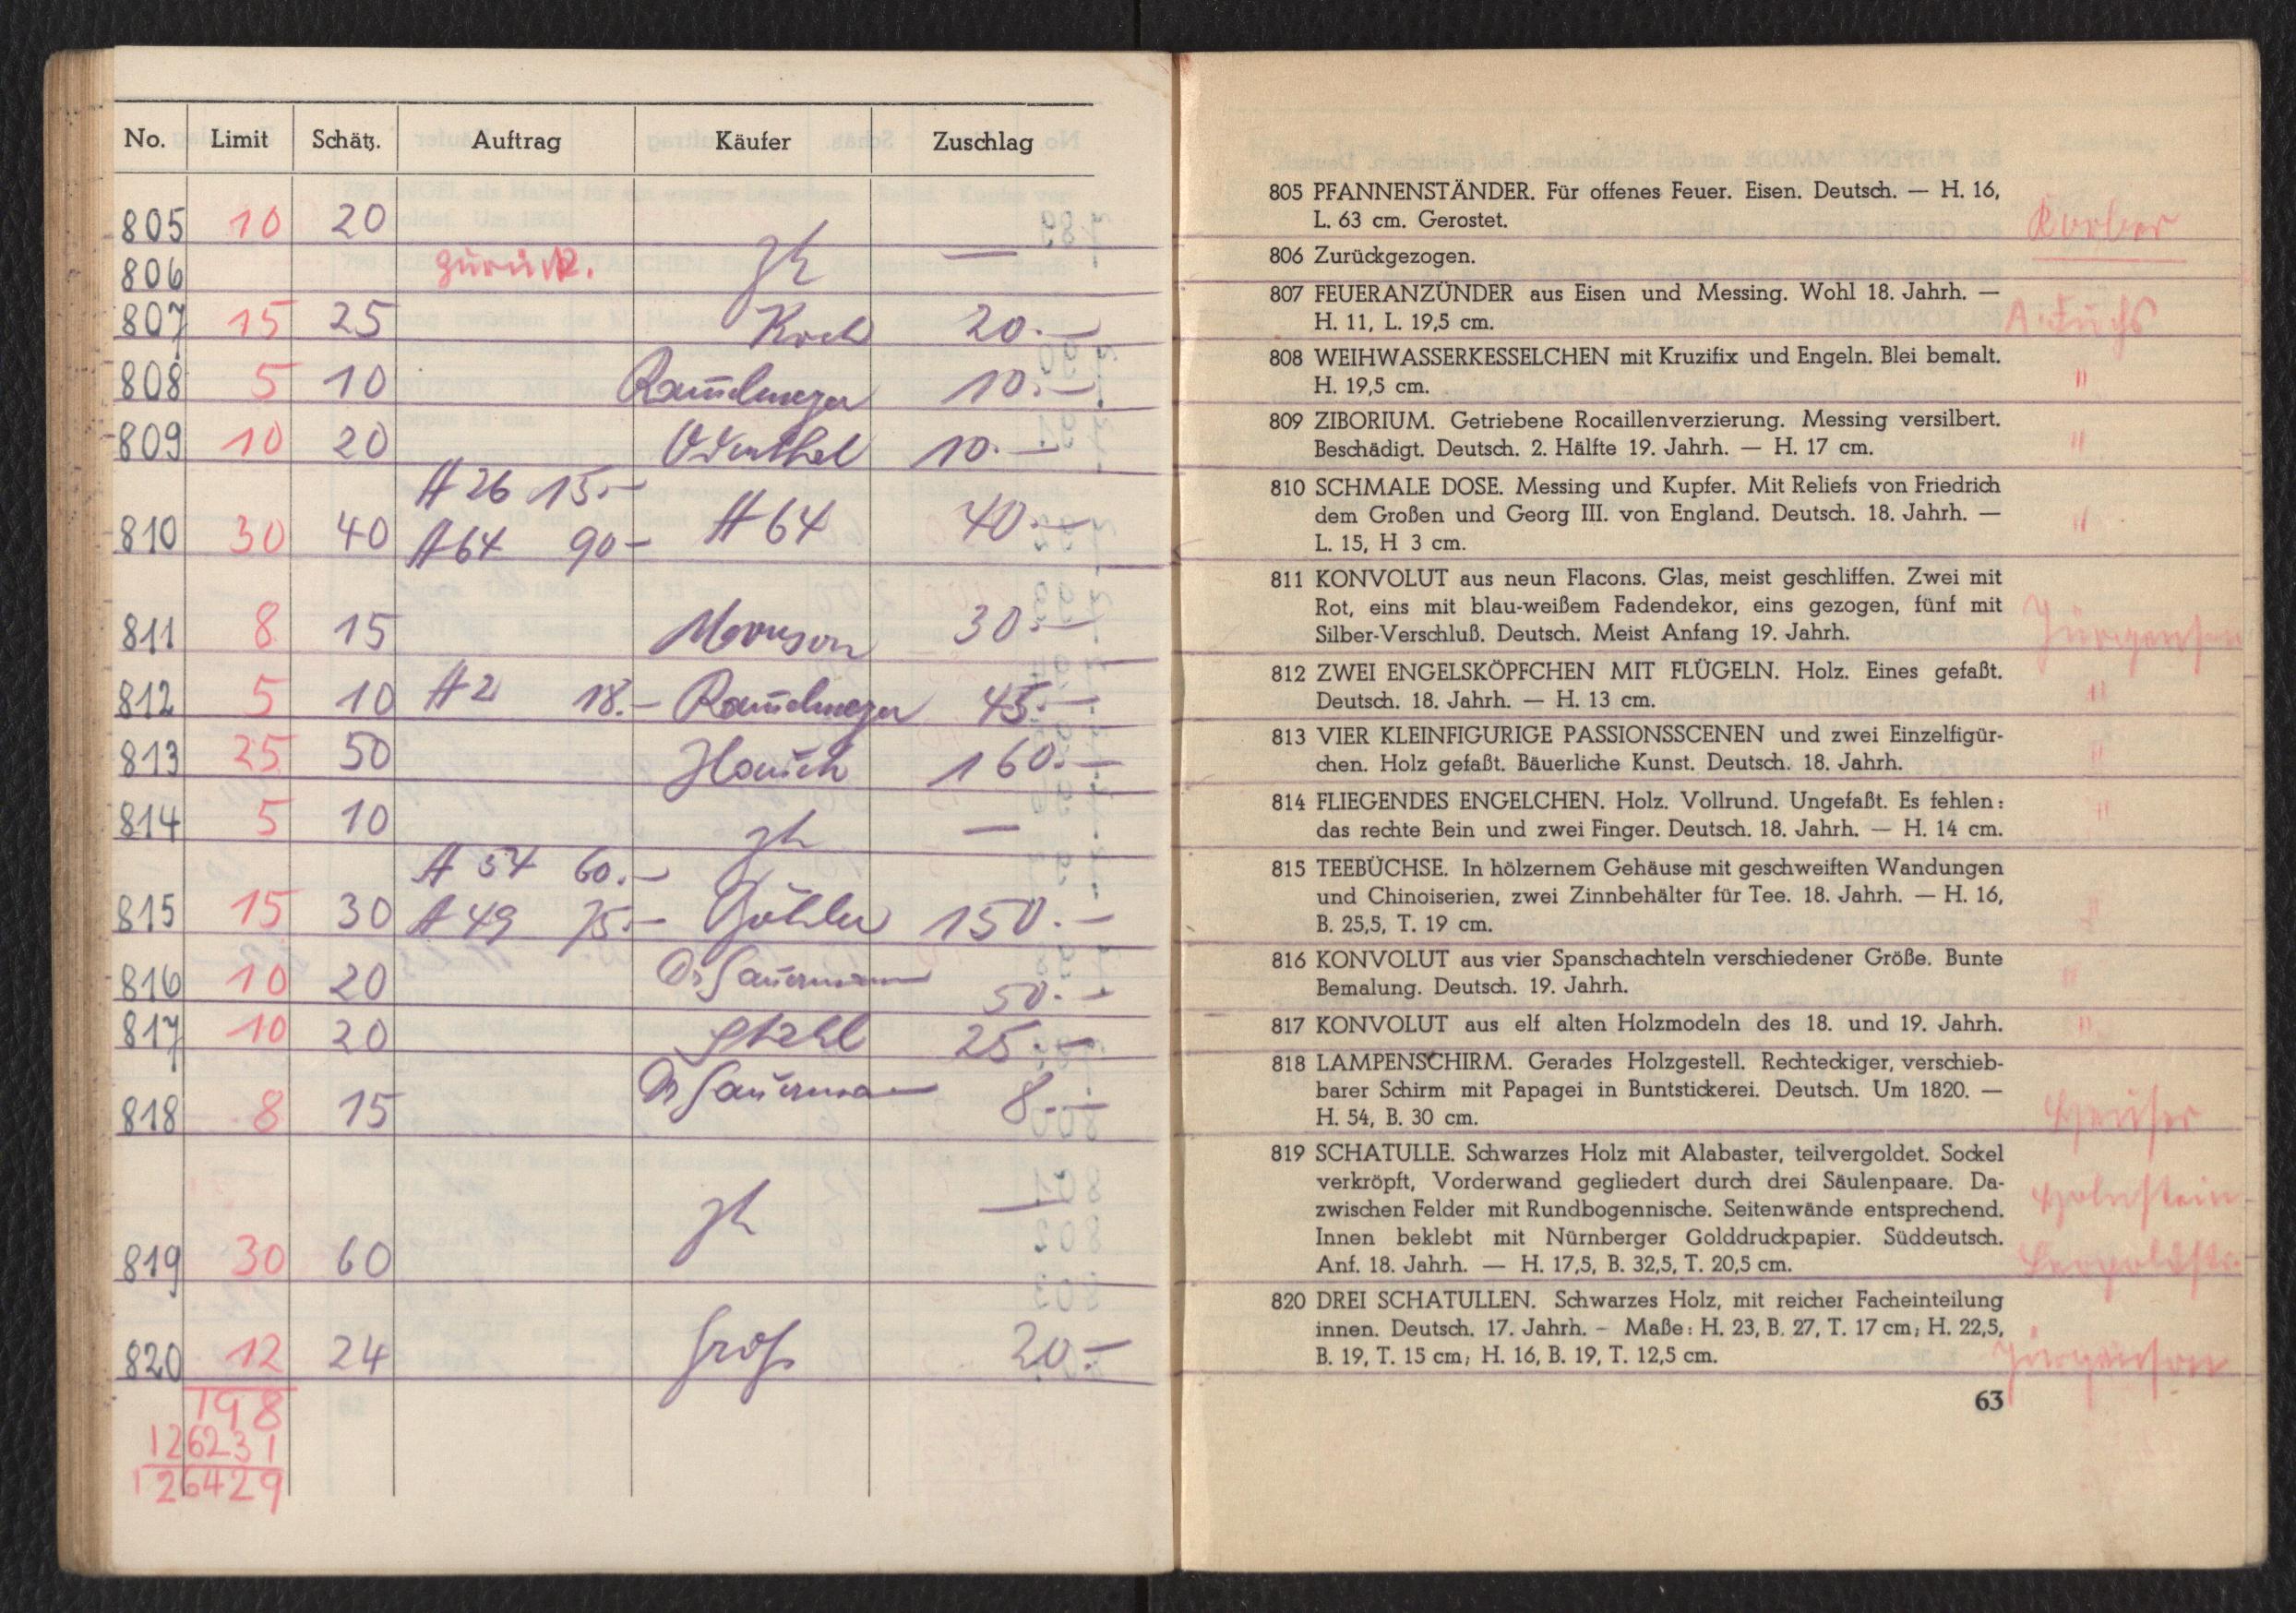 No. Limit Schätz. Auftrag Käufer Zuschlag
805 10 20 —
806 zurück. zh
807 15 25 Koch 20.—
808 5 10 10.—
809 10 20 Odenthal 10.—
A 26 15.—
810 30 40 A 64 90- A 64 40.—
811 8 15 30.—
812 5 10 A 2 18.— 45.—
813 25 50 160.—
814 5 10 zh —
A 54 60.—
815 15 30 A 49 75.— Göhler 150.—
816 10 20 Dr Sauermann 50.—
817 10 20 25.—
818 8 15 Dr Sauermann 8.—
819 30 60 zh —
820 12 24 Groß 20.—
198
126231
126429
805 PFANNENSTÄNDER. Für offenes Feuer. Eisen. Deutsch. — H. 16,
L. 63 cm. Gerostet. Körber
806 Zurückgezogen.
807 FEUERANZÜNDER aus Eisen und Messing. Wohl 18. Jahrh. —
H. 11, L. 19,5 cm. A. Fuchs
808 WEIHWASSERKESSELCHEN mit Kruzifix und Engeln. Blei bemalt.
H. 19,5 cm. "
809 ZIBORIUM. Getriebene Rocaillenverzierung. Messing versilbert.
Beschädigt. Deutsch. 2. Hälfte 19. Jahrh. — H. 17 cm. "
810 SCHMALE DOSE. Messing und Kupfer. Mit Reliefs von Friedrich
dem Großen und Georg III. von England. Deutsch. 18. Jahrh. — "
L. 15, H 3 cm.
811 KONVOLUT aus neun Flacons. Glas, meist geschliffen. Zwei mit
Rot, eins mit blau-weißem Fadendekor, eins gezogen, fünf mit
Silber-Verschluß. Deutsch. Meist Anfang 19. Jahrh. Jürgensen
812 ZWEI ENGELSKÖPFCHEN MIT FLÜGELN. Holz. Eines gefaßt.
Deutsch. 18. Jahrh. — H. 13 cm. "
813 VIER KLEINFIGURIGE PASSIONSSCENEN und zwei Einzelfigür-
chen. Holz gefaßt. Bäuerliche Kunst. Deutsch. 18. Jahrh. "
814 FLIEGENDES ENGELCHEN. Holz. Vollrund. Ungefaßt. Es fehlen:
das rechte Bein und zwei Finger. Deutsch. 18. Jahrh. — H. 14 cm. "
815 TEEBÜCHSE. In hölzernem Gehäuse mit geschweiften Wandungen
und Chinoiserien, zwei Zinnbehälter für Tee. 18. Jahrh. — H. 16, "
B. 25,5, T. 19 cm.
816 KONVOLUT aus vier Spanschachteln verschiedener Größe. Bunte
Bemalung. Deutsch. 19. Jahrh. "
817 KONVOLUT aus elf alten Holzmodeln des 18. und 19. Jahrh. "
818 LAMPENSCHIRM. Gerades Holzgestell. Rechteckiger, verschieb-
barer Schirm mit Papagei in Buntstickerei. Deutsch. Um 1820. —
H. 54, B. 30 cm. Häuser
819 SCHATULLE. Schwarzes Holz mit Alabaster, teilvergoldet. Sockel
verkröpft, Vorderwand gegliedert durch drei Säulenpaare. Da-
zwischen Felder mit Rundbogennische. Seitenwände entsprechend. Holnstein
Innen beklebt mit Nürnberger Golddruckpapier. Süddeutsch.
Anf. 18. Jahrh. — H. 17,5, B. 32,5, T. 20,5 cm. Leopoldstr.
820 DREI SCHATULLEN. Schwarzes Holz, mit reicher Facheinteilung
innen. Deutsch. 17. Jahrh. – Maße: H. 23, B. 27, T. 17 cm; H. 22,5,
B. 19, T. 15 cm; H. 16, B. 19, T. 12,5 cm. Jürgensen
63